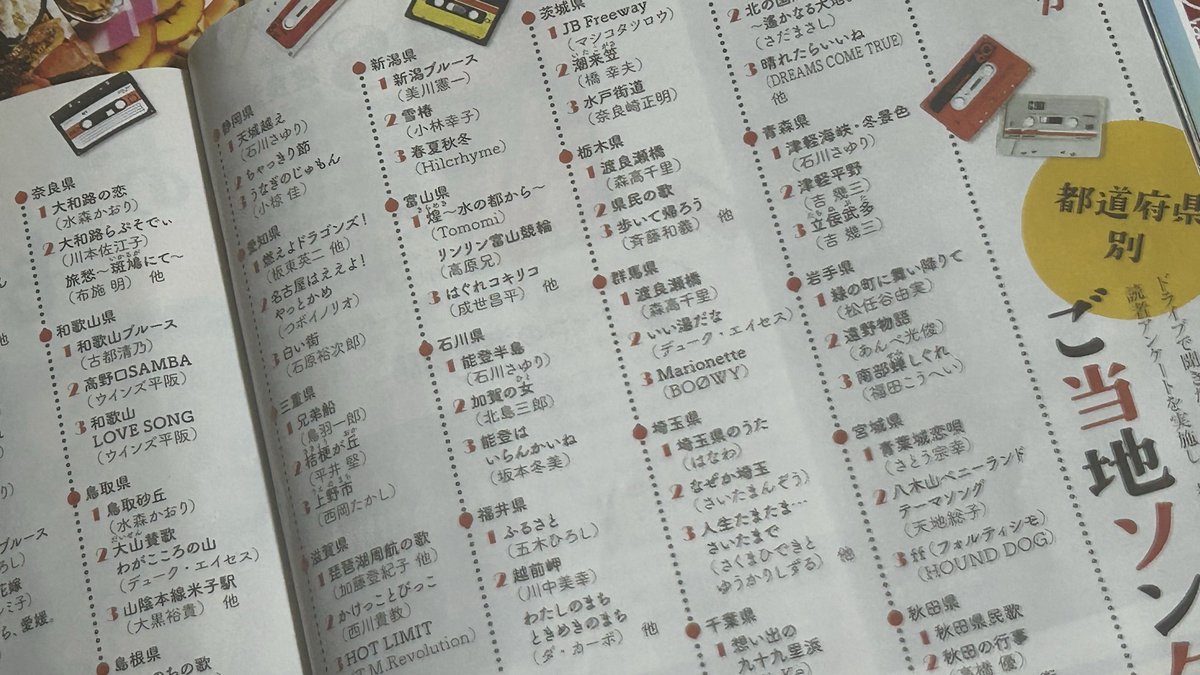 都道府県
別
ご当地ソング
ドライブで聞き
読者アンケートを実施し
2 北の国
〜遙かなる大地
(さだまさし)
3 晴れたらいいね
(DREAMS COME TRUE)
他
青森県
1 津軽海峡・冬景色
(石川さゆり)
2 津軽平野
(吉 幾三)
3 立佞武多
(吉 幾三)
岩手県
1 緑の町に舞い降りて
(松任谷由実)
2 遠野物語
(あんべ光俊)
3 南部蝉しぐれ
(福田こうへい)
宮城県
1 青葉城恋唄
(さとう宗幸)
2 八木山ベニーランド
テーマソング
(天地総子)
3 ff (フォルティシモ)
(HOUND DOG)
秋田県
1 秋田県民歌
2 秋田の行事
(高橋 優)
茨城県
1 JB Freeway
(マシコタツロウ)
2 潮来笠
(橋 幸夫)
3 水戸街道
(奈良崎正明)
栃木県
1 渡良瀬橋
(森高千里)
2 県民の歌
3 歩いて帰ろう
(斉藤和義) 他
群馬県
1 渡良瀬橋
(森高千里)
2 いい湯だな
(デューク・エイセス)
3 Marionette
(BOØWY)
埼玉県
1 埼玉県のうた
(はなわ)
2 なぜか埼玉
(さいたまんぞう)
3 人生たまたま…
さいたまで
(さくまひできと
ゆうかりしずる) 他
千葉県
1 想い出の
九十九里浜
新潟県
1 新潟ブルース
(美川憲一)
2 雪椿
(小林幸子)
3 春夏秋冬
(Hilcrhyme)
富山県
1 煌〜水の都から〜
(Tomomi)
リンリン富山競輪
(高原兄)
3 はぐれコキリコ
(成世昌平) 他
石川県
1 能登半島
(石川さゆり)
2 加賀の女
(北島三郎)
3 能登は
いらんかいね
(坂本冬美)
福井県
1 ふるさと
(五木ひろし)
2 越前岬
(川中美幸)
わたしのまち
ときめきのまち
(ダ・カーポ) 他
静岡県
1 天城越え
(石川さゆり)
2 ちゃっきり節
3 うなぎのじゅもん
(小椋 佳)
愛知県
1 燃えよドラゴンズ!
(板東英二 他)
2 名古屋はええよ!
やっとかめ
(つボイノリオ)
3 白い街
(石原裕次郎)
三重県
1 兄弟船
(鳥羽一郎)
2 桔梗が丘
(平井 堅)
3 上野市
(西岡たかし)
滋賀県
1 琵琶湖周航の歌
(加藤登紀子 他)
2 かけっことびっこ
(西川貴教)
3 HOT LIMIT
(T.M.Revolution)
奈良県
1 大和路の恋
(水森かおり)
2 大和路らぷそでぃ
(川本佐江子)
旅愁〜斑鳩にて〜
(布施 明) 他
和歌山県
1 和歌山ブルース
(古都清乃)
2 高野□SAMBA
(ウインズ平阪)
3 和歌山
LOVE SONG
(ウインズ平阪)
鳥取県
1 鳥取砂丘
(水森かおり)
2 大山賛歌
わがこころの山
(デューク・エイセス)
3 山陰本線米子駅
(大黒裕貴) 他
島根県
のちの歌
他
ブルース
花嫁
ら、愛媛。